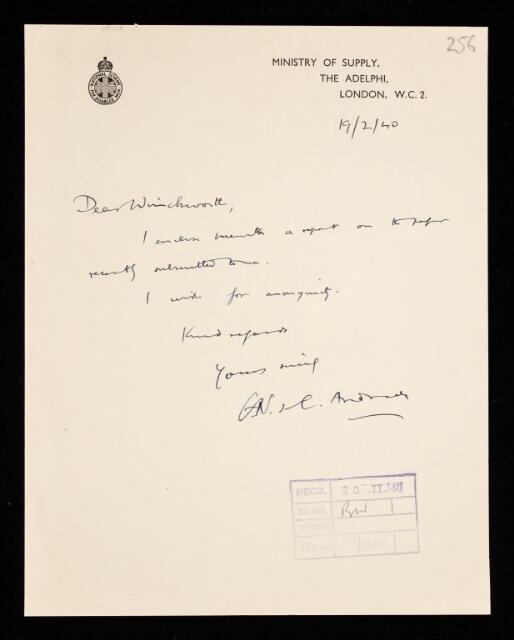 256
NATIONAL SCHEME FOR DISABLED MEN
MINISTRY OF SUPPLY,
THE ADELPHI,
LONDON, W.C.2.
19/2/40
Dear Winckworth,
I enclose herewith a report on the paper
recently submitted to me.
I wish for anonymity.
Kind regards
Yours sincly
E.N. da C. Andrade
RECD. 20 II 40
TO ANS.
TO NOTE
FILE No.